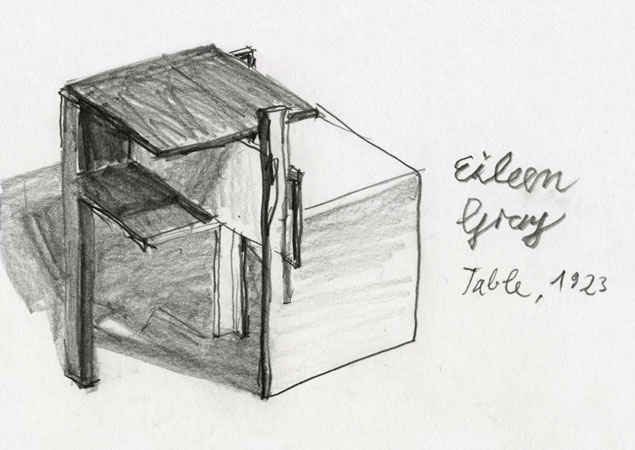 Eileen
Gray
Table, 1923